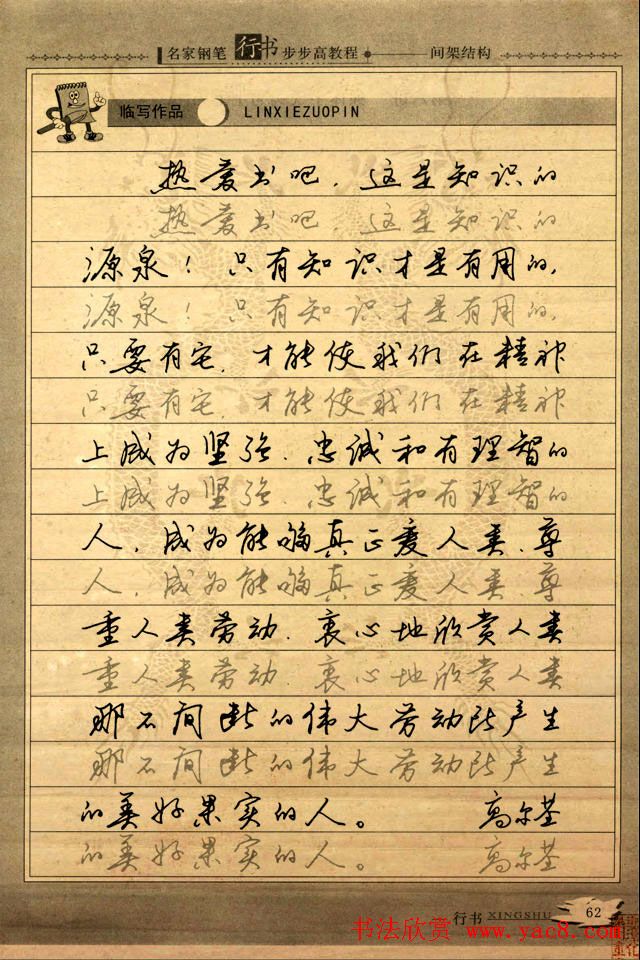 名家钢笔行书步步高教程 间架结构
临写作品 LINXIEZUOPIN
热爱书吧,这是知识的
热爱书吧,这是知识的
源泉!只有知识才是有用的,
源泉!只有知识才是有用的,
只要有它,才能使我们在精神
只要有它,才能使我们在精神
上成为坚强、忠诚和有理智的
上成为坚强、忠诚和有理智的
人,成为能够真正爱人类、尊
人,成为能够真正爱人类、尊
重人类劳动、衷心地欣赏人类
重人类劳动、衷心地欣赏人类
那不间断的伟大劳动所产生
那不间断的伟大劳动所产生
的美好果实的人。 高尔基
的美好果实的人。 高尔基
行书 XINGSHU 62
书法欣赏 www.yac8.com